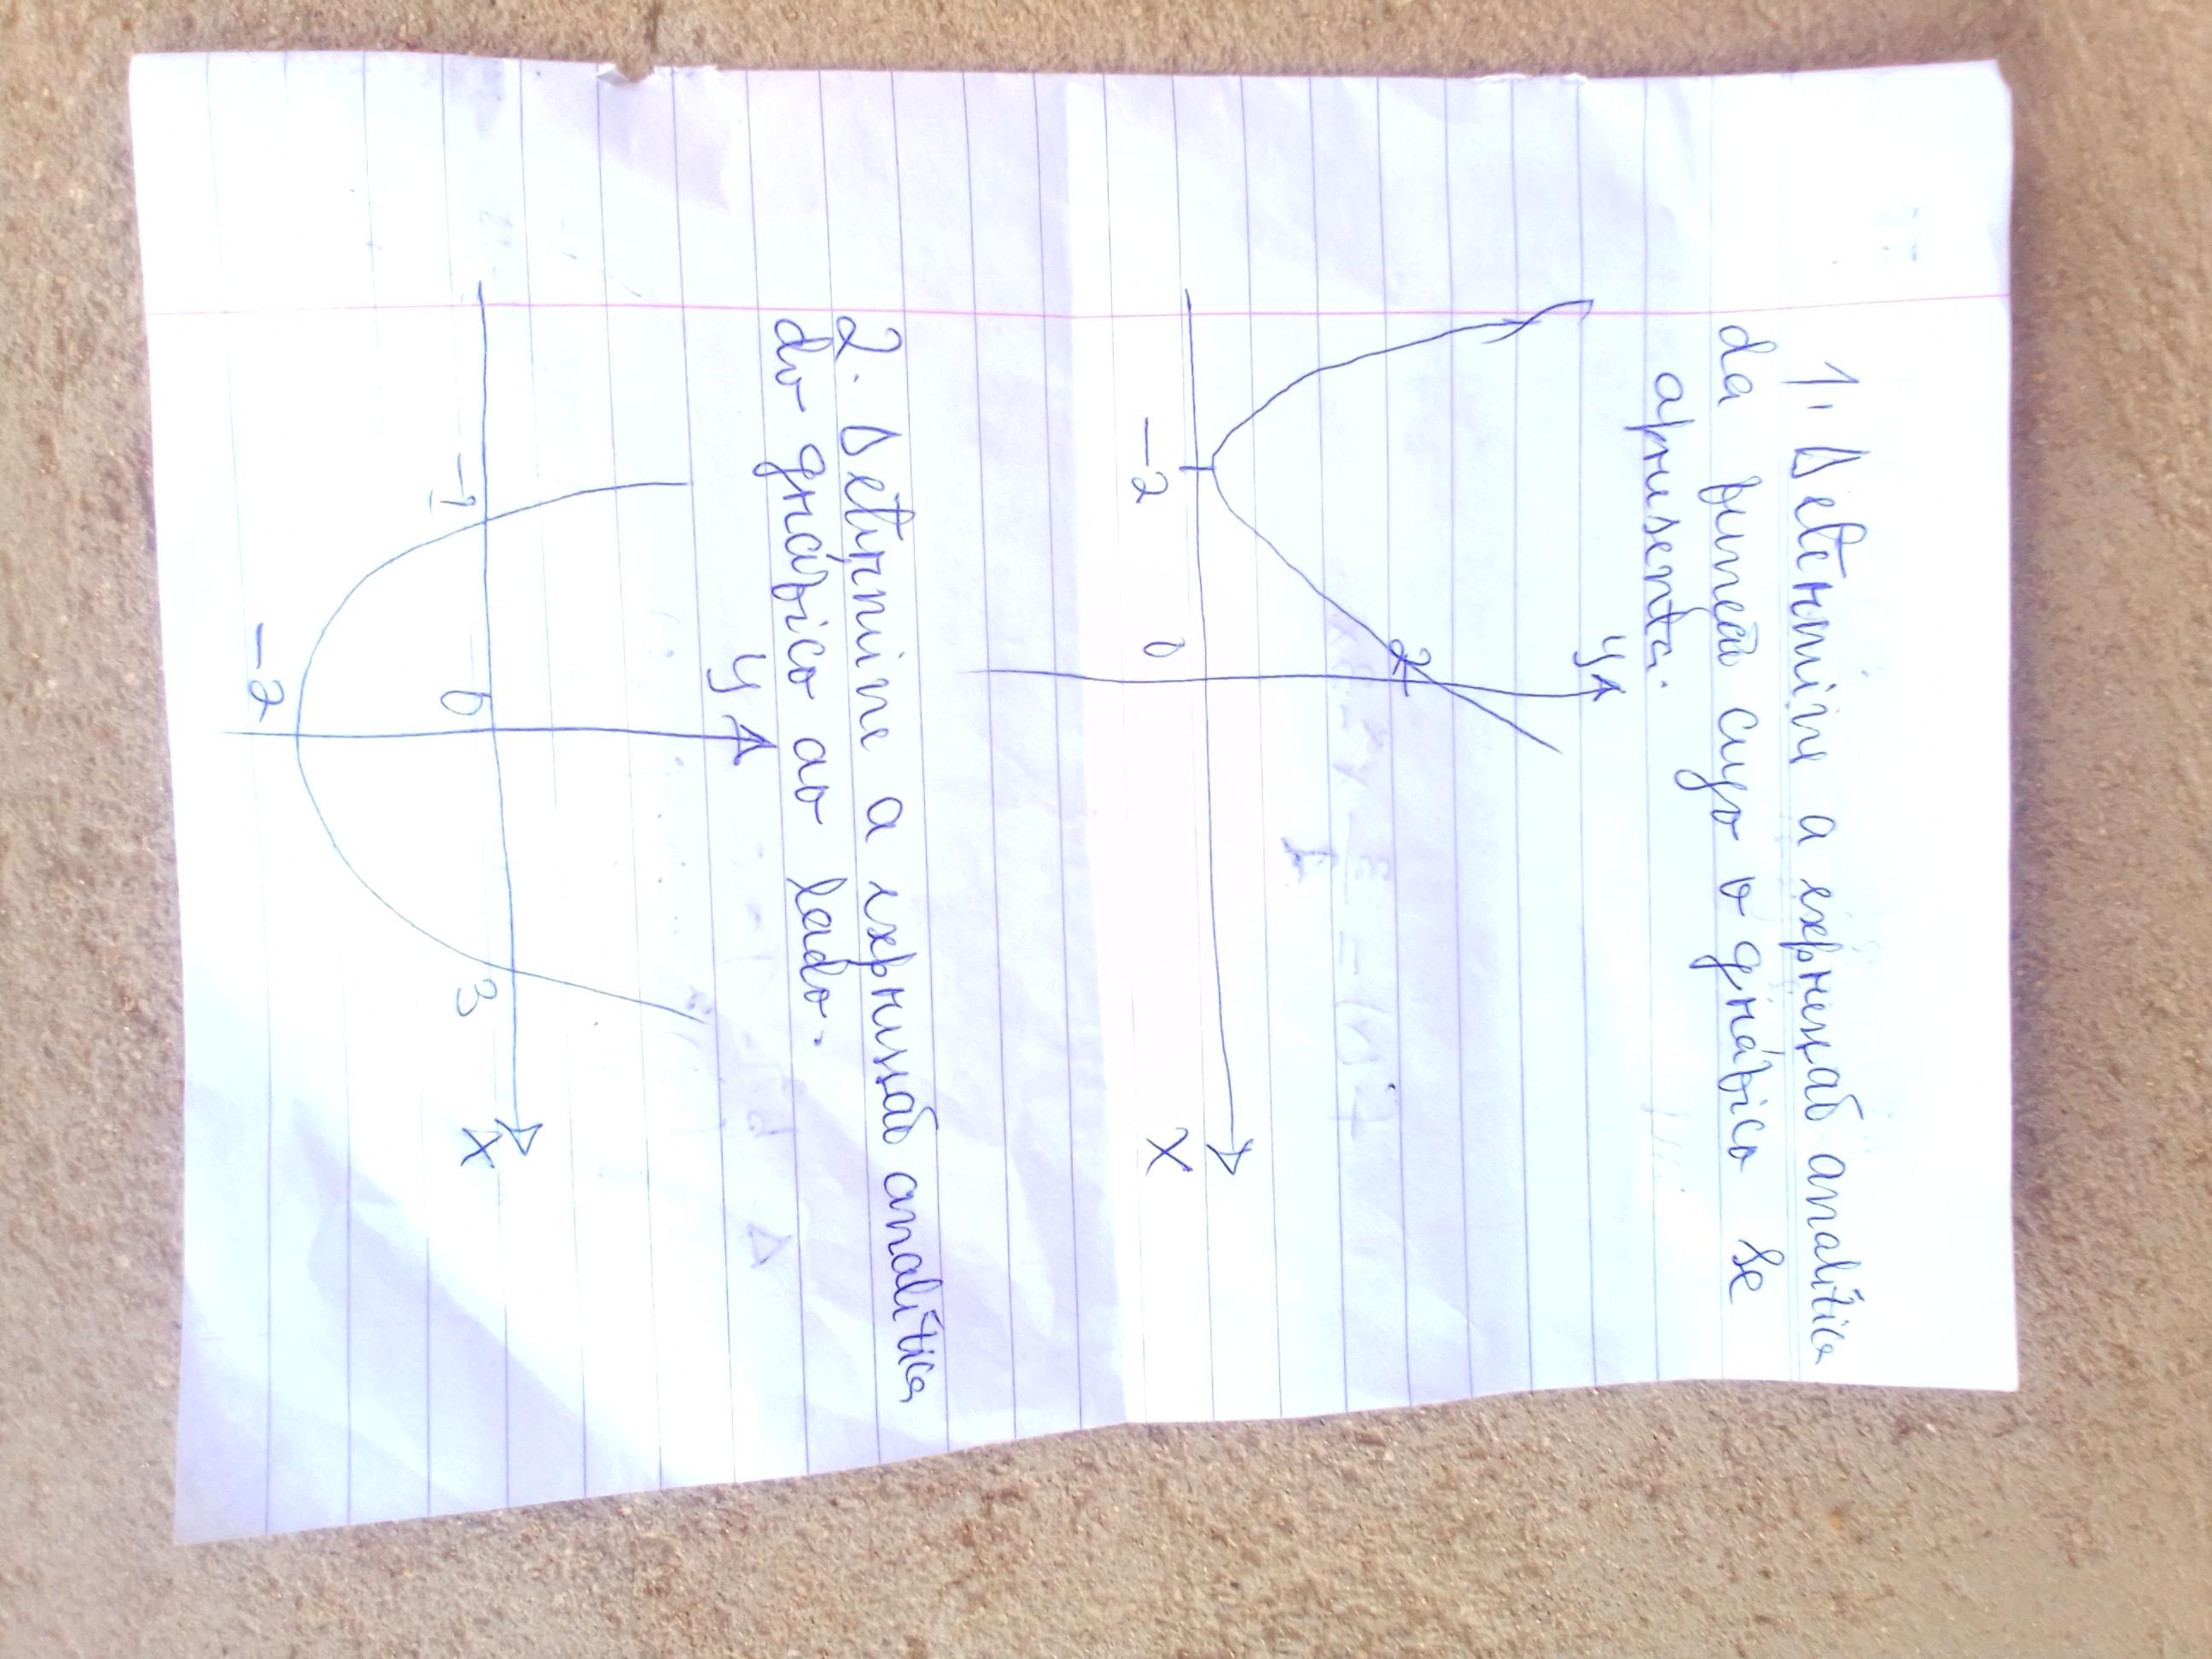 1. Determine a expressão analítica
da função cujo o gráfico se
apresenta.
y
2
-2
0
x
2. Determine a expressão analítica
do gráfico ao lado.
y
-1
0
3
x
-2